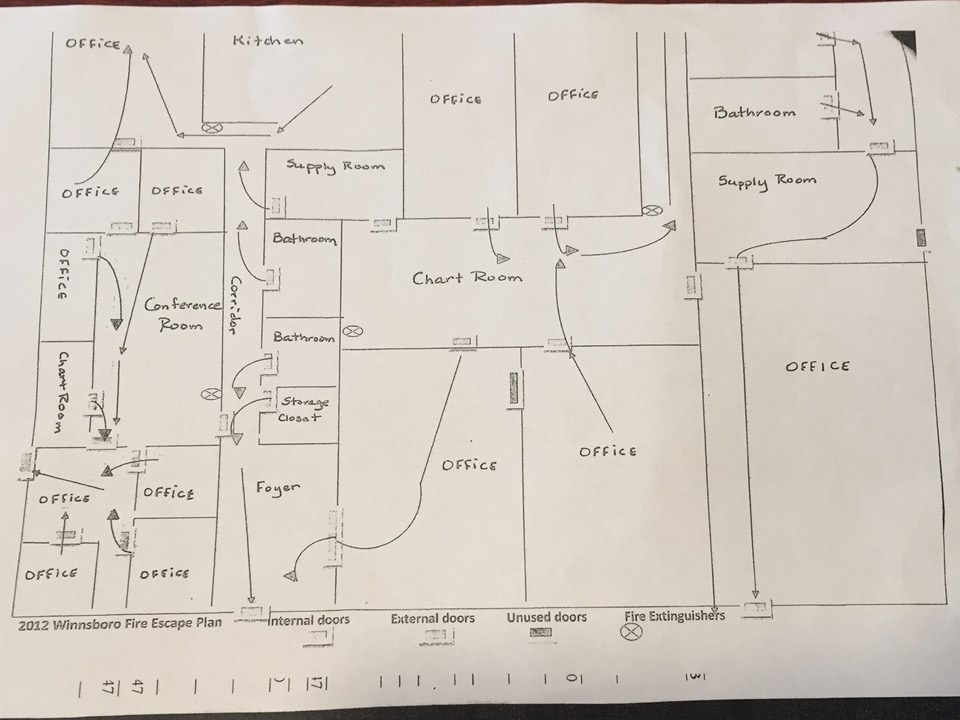 OFFICE
Kitchen
OFFICE
OFFICE
Bathroom
Supply Room
Supply Room
OFFICE
OFFICE
Bathroom
OFFICE
Chart Room
Corridor
Conference
Room
Bathroom
Chart Room
OFFICE
Storage
Closet
OFFICE
OFFICE
OFFICE
OFFICE
Foyer
OFFICE
OFFICE
2012 Winnsboro Fire Escape Plan
Internal doors
External doors
Unused doors
Fire Extinguishers